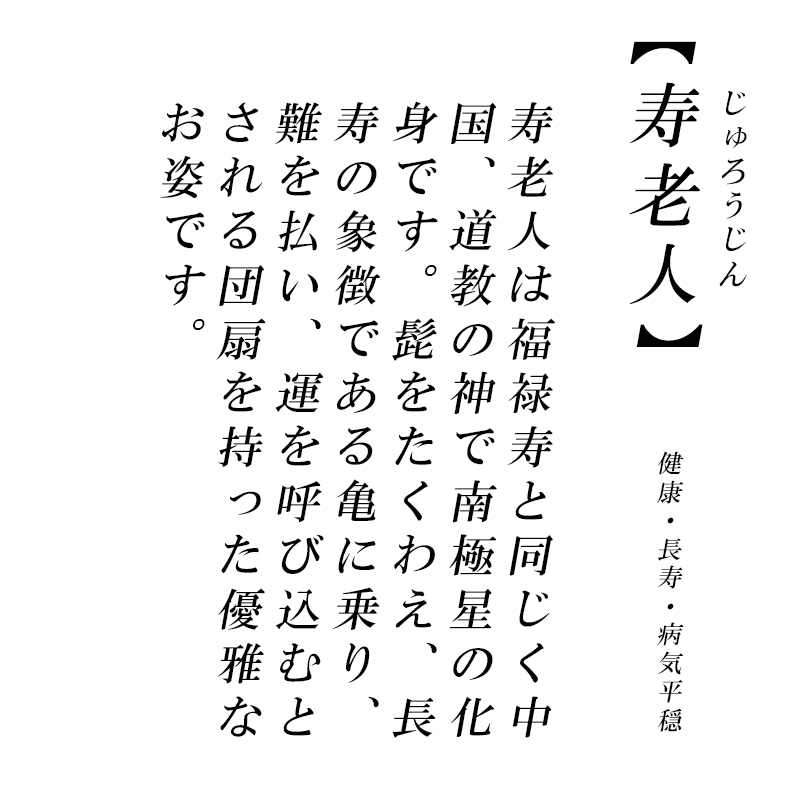 じゅろうじん
【寿老人】
健康・長寿・病気平穏
寿老人は福禄寿と同じく中
国、道教の神で南極星の化
身です。髭をたくわえ、長
寿の象徴である亀に乗り、
難を払い、運を呼び込むと
される団扇を持った優雅な
お姿です。